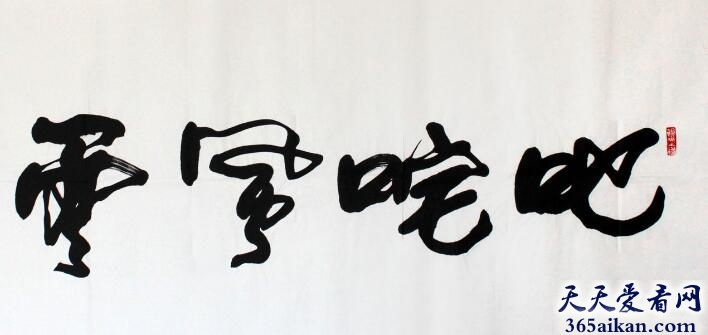 叱咤風雲
天天爱看网
365aikan.com